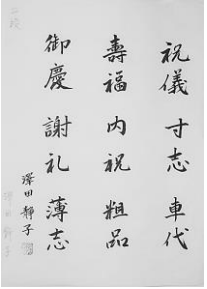 祝儀 寸志 車代
壽福 内祝 粗品
御慶 謝礼 薄志
澤田靜子